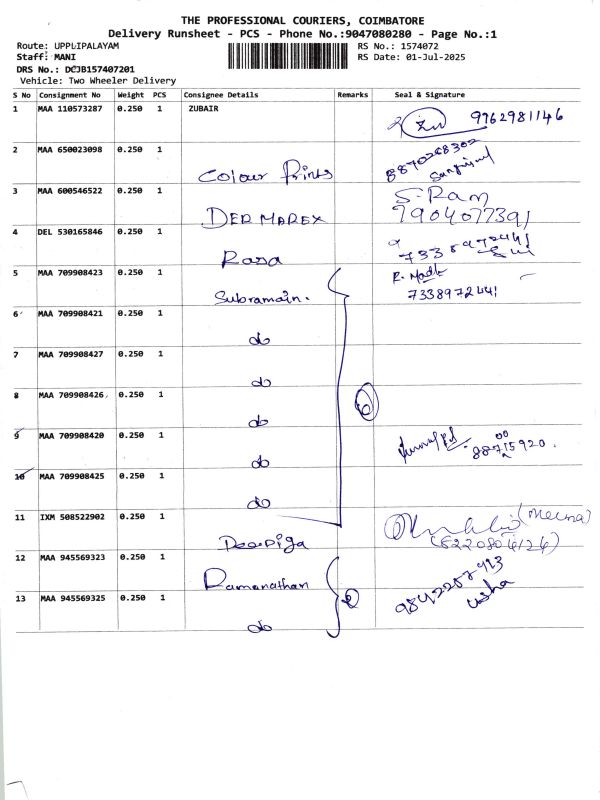 THE PROFESSIONAL COURIERS, COIMBATORE
Delivery Runsheet - PCS - Phone No.:9047080280 - Page No.:1
Route: UPPLIPALAYAM RS No.: 1574072
Staff: MANI RS Date: 01-Jul-2025
DRS No.: DCJB157407201
Vehicle: Two Wheeler Delivery
S No Consignment No Weight PCS Consignee Details Remarks Seal & Signature
1 MAA 110573287 0.250 1 ZUBAIR 9962981146
2 MAA 650023098 0.250 1 Colour Prints 8870268302
3 MAA 600546522 0.250 1 DERMAREX S. Ram
7904077391
4 DEL 530165846 0.250 1 Rasa 7338972441
5 MAA 709908423 0.250 1 Subramain. R. Madh
7338972441
6 MAA 709908421 0.250 1 do
7 MAA 709908427 0.250 1 do
8 MAA 709908426 0.250 1 do 6
9 MAA 709908420 0.250 1 do
10 MAA 709908425 0.250 1 do
11 IXM 508522902 0.250 1 Deepiga (Meena)
12 MAA 945569323 0.250 1 Ramanathan
13 MAA 945569325 0.250 1 do 2 9842257913
usha